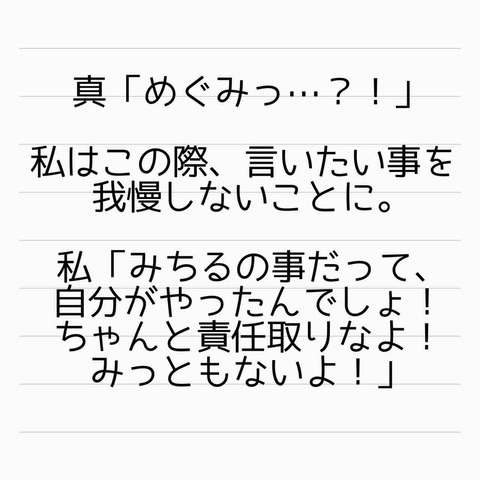 真「めぐみっ…？！」
私はこの際、言いたい事を
我慢しないことに。
私「みちるの事だって、
自分がやったんでしょ！
ちゃんと責任取りなよ！
みっともないよ！」